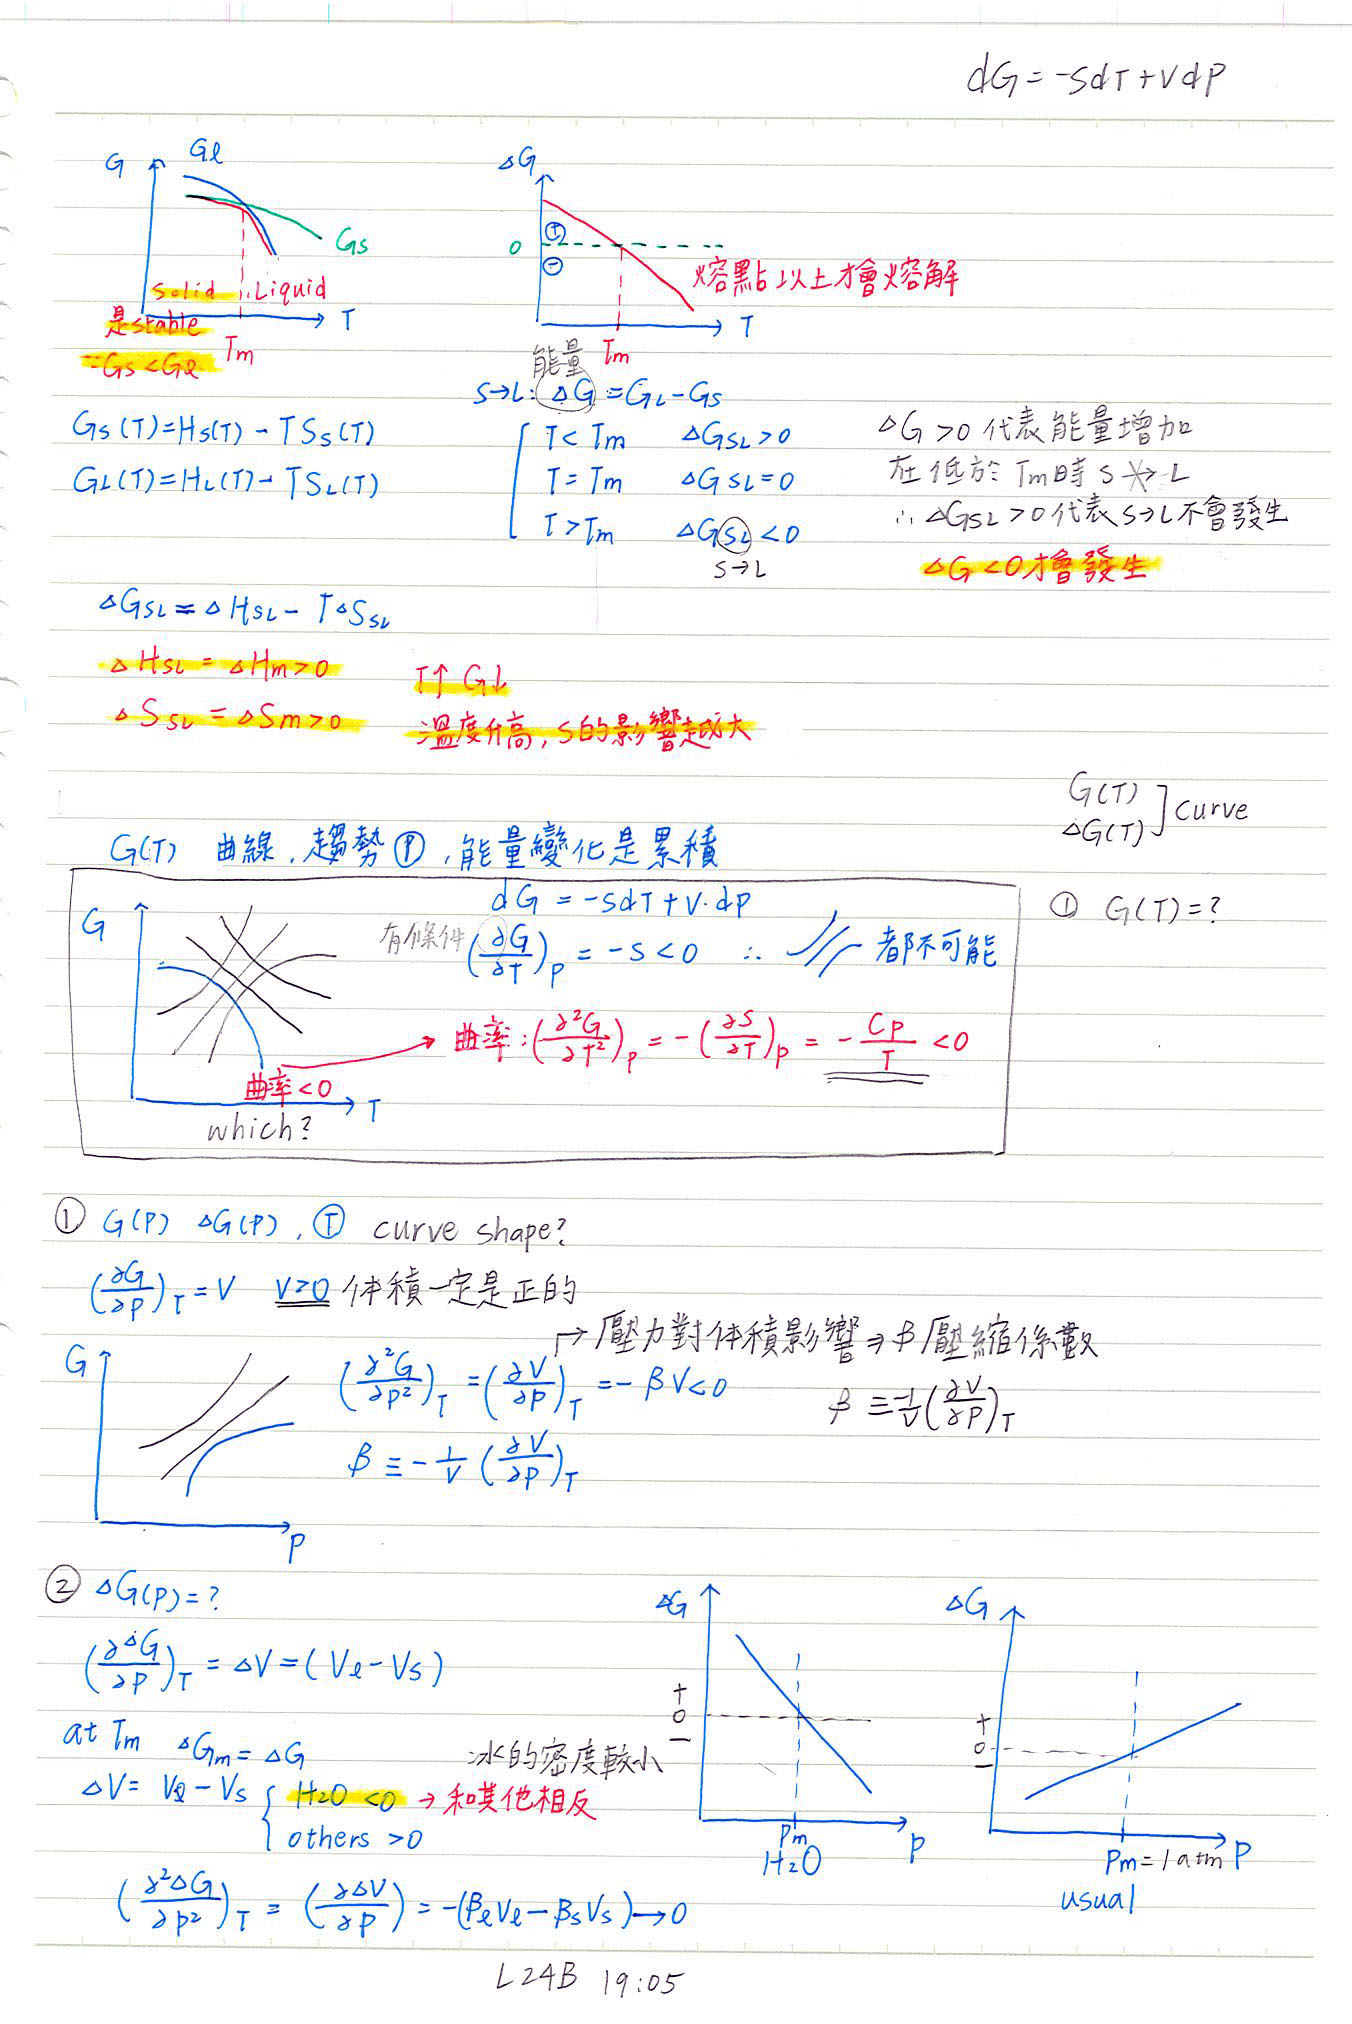 dG = -SdT + VdP
G Gℓ Gs
Solid ∴ Liquid T
是stable
∵Gs<Gℓ Tm
ΔG
⊕
0
⊖
熔點以上才會熔解
T
能量 Tm
S→L: ΔG = GL-Gs
Gs(T)=Hs(T) - TSs(T)
GL(T)=HL(T) - TSL(T)
T< Tm ΔGSL>0
T= Tm ΔGSL=0
T>Tm ΔGSL<0
S→L
ΔG>0 代表能量增加
在低於 Tm時 S↛L
∴ΔGSL>0代表S→L不會發生
ΔG<0才會發生
ΔGSL = ΔHSL - TΔSSL
ΔHSL = ΔHm>0 T↑ G↓
ΔSSL = ΔSm>0 溫度升高, S的影響越大
G(T)
ΔG(T)] curve
G(T) 曲線, 趨勢 Ⓟ, 能量變化是累積
① G(T)=?
dG = -SdT + V·dP
G
有條件 (∂G/∂T)P = -S<0 ∴ 都不可能
→ 曲率: (∂²G/∂T²)P = -(∂S/∂T)P = - CP/T <0
曲率<0
T
which?
① G(P) ΔG(P), Ⓣ curve shape?
(∂G/∂P)T = V V>0 体積一定是正的
→ 壓力對体積影響 → β壓縮係數
G
(∂²G/∂P²)T = (∂V/∂P)T = -βV<0
β ≡ -1/V (∂V/∂P)T
β ≡ -1/V (∂V/∂P)T
P
② ΔG(P)=?
(∂ΔG/∂P)T = ΔV = (Vℓ-Vs)
at Tm ΔGm = ΔG
冰的密度較小
ΔV = Vℓ - Vs { H2O <0 → 和其他相反
others >0
ΔG
+
0
-
Pm
H2O
P
ΔG
+
0
-
Pm=1atm P
usual
(∂²ΔG/∂P²)T = (∂ΔV/∂P) = -(βℓVℓ - βsVs) → 0
L24B 19:05